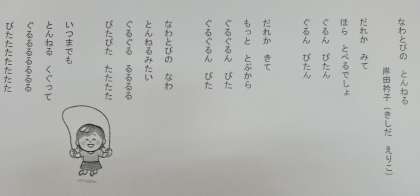 なわとびの　とんねる
岸田衿子（きしだ　えりこ）
だれか　みて
ほら　とべるでしょ
ぐるん　ぴたん
ぐるん　ぴたん
だれか　きて
もっと　とぶから
ぐるぐるん　ぴた
ぐるぐるん　ぴた
なわとびの　なわ
とんねるみたい
ぐるぐる　るるるる
ぴたぴた　たたたた
いつまでも
とんねる　くぐって
ぐるるるるるるる
ぴたたたたたたた